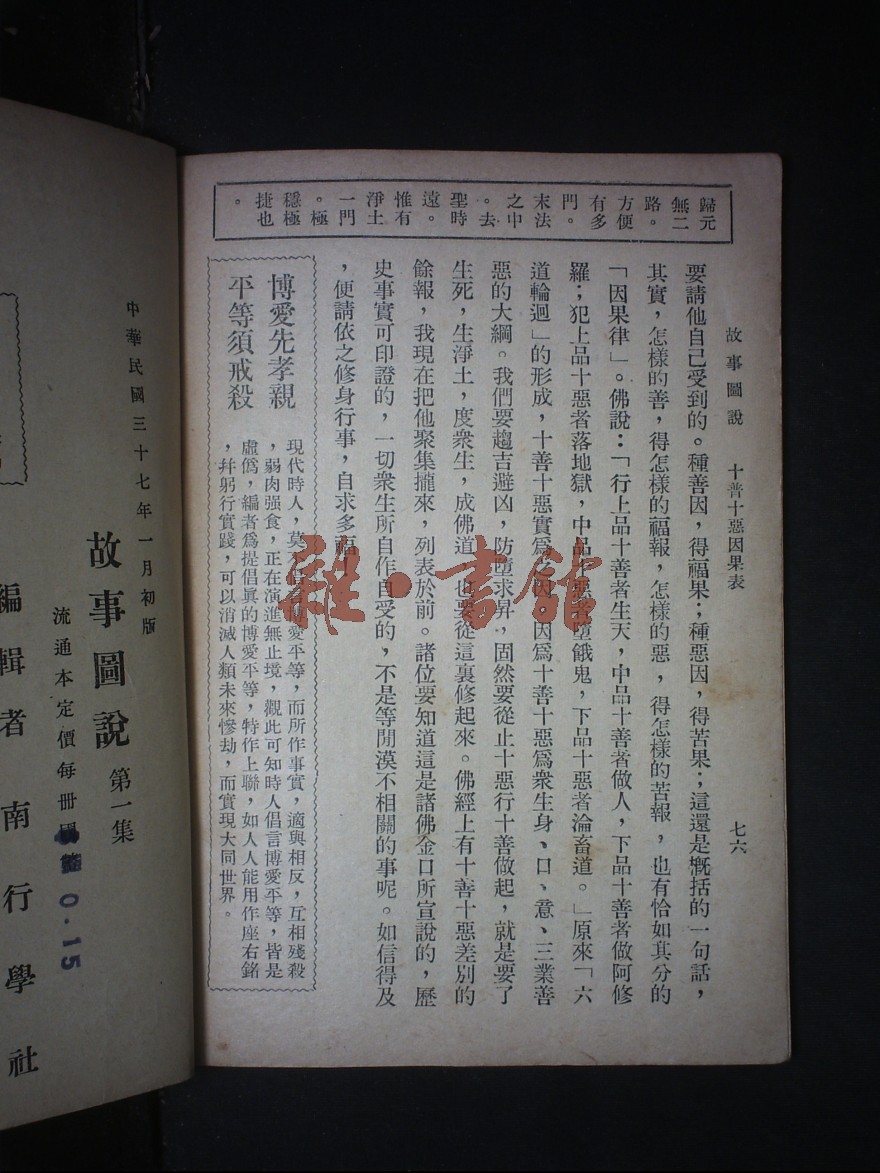 故事圖說　十普十惡因果表　七六
歸元
無二
路。
方便
有多
門。
末法
之中
。去
聖時
遠。
惟有
淨土
一門
。極
穩極
捷也
。
要請他自已受到的。種善因，得福果；種惡因，得苦果；這還是概括的一句話，
其實，怎樣的善，得怎樣的福報，怎樣的惡，得怎樣的苦報，也有恰如其分的
「因果律」。佛說：「行上品十善者生天，中品十善者做人，下品十善者做阿修
羅；犯上品十惡者落地獄，中品十惡者墮餓鬼，下品十惡者淪畜道。」原來「六
道輪迴」的形成，十善十惡實爲之因，因爲十善十惡爲衆生身、口、意、三業善
惡的大綱。我們要趨吉避凶，防墮求昇，固然要從止十惡行十善做起，就是要了
生死，生淨土，度衆生，成佛道，也要從這裏修起來。佛經上有十善十惡差別的
餘報，我現在把他聚集攏來，列表於前。諸位要知道這是諸佛金口所宣說的，歷
史事實可印證的，一切衆生所自作自受的，不是等閒漠不相關的事呢。如信得及
，便請依之修身行事，自求多福！
博愛先孝親
平等須戒殺
現代時人，莫不倡言博愛平等，而所作事實，適與相反，互相殘殺
，弱肉强食，正在演進無止境，觀此可知時人倡言博愛平等，皆是
虛僞，編者爲提倡眞的博愛平等，特作上聯，如人人能用作座右銘
，幷躬行實踐，可以消滅人類未來慘劫，而實現大同世界。
中華民國三十七年一月初版
故事圖說 第一集
流通本定價每冊國 0.15
編輯者　南行學社
雅·書館